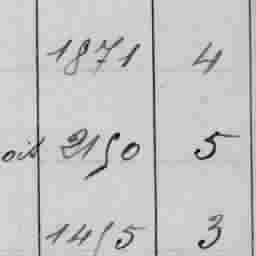 1871 4
oih 2150 5
1415 3